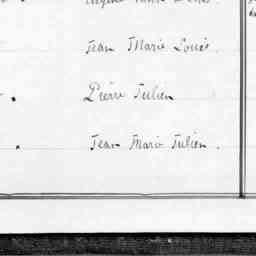 Jean Marie Louis.
Pierre Julien
Jean Marie Julien.